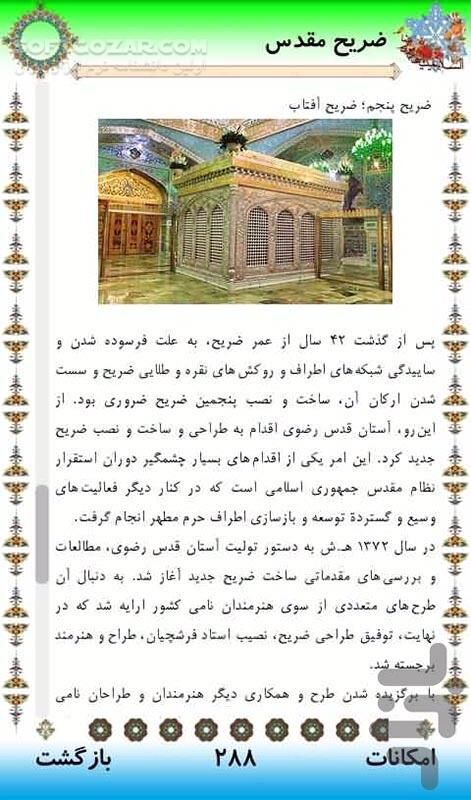 ضریح مقدس
SOFTGOZAR.COM
ضریح پنجم؛ ضریح آفتاب
پس از گذشت ۴۲ سال از عمر ضریح، به علت فرسوده شدن و
ساییدگی شبکه‌های اطراف و روکش‌های نقره و طلایی ضریح و سست
شدن ارکان آن، ساخت و نصب پنجمین ضریح ضروری بود. از
این‌رو، آستان قدس رضوی اقدام به طراحی و ساخت و نصب ضریح
جدید کرد. این امر یکی از اقدام‌های بسیار چشمگیر دوران استقرار
نظام مقدس جمهوری اسلامی است که در کنار دیگر فعالیت‌های
وسیع و گستردة توسعه و بازسازی اطراف حرم مطهر انجام گرفت.
در سال ۱۳۷۲ هـ.ش به دستور تولیت آستان قدس رضوی، مطالعات
و بررسی‌های مقدماتی ساخت ضریح جدید آغاز شد. به دنبال آن
طرح‌های متعددی از سوی هنرمندان نامی کشور ارایه شد که در
نهایت، توفیق طراحی ضریح، نصیب استاد فرشچیان، طراح و هنرمند
برجسته شد.
با برگزیده شدن طرح و همکاری دیگر هنرمندان و طراحان نامی
امکانات
۲۸۸
بازگشت
بازار